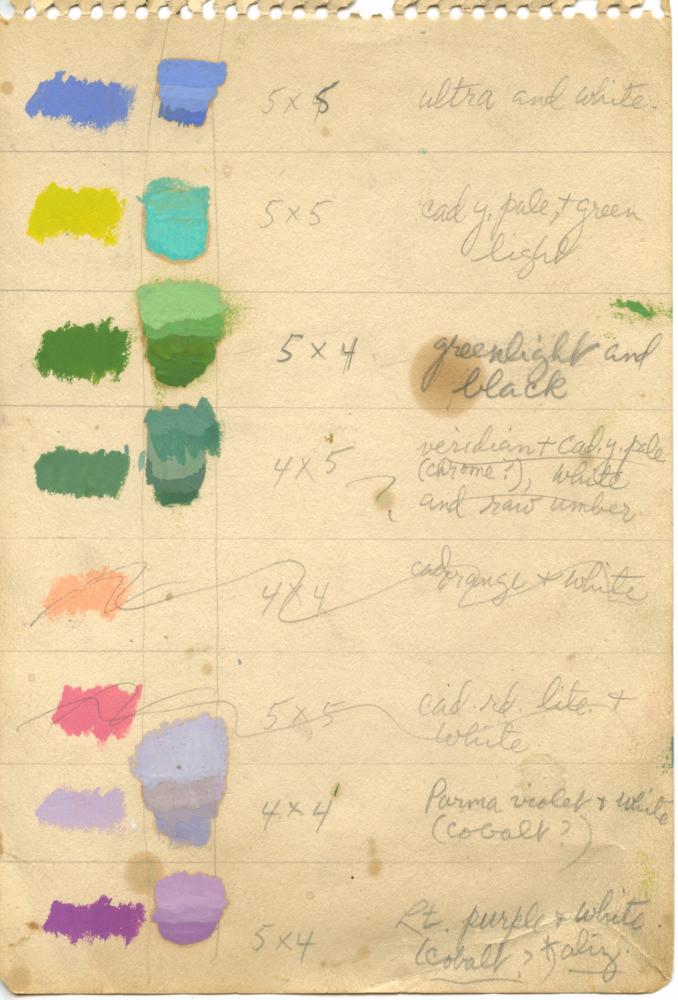 5 x 5 ultra and white.
5 x 5 cad y. pale, + green
light
5 x 4 greenlight and
black
4 x 5 veridian + cad. y. pale
(chrome?), white
and raw umber
4 x 4 cad orange + white
5 x 5 cad. rd. lite. +
white
4 x 4 Parma violet + white
(cobalt?)
5 x 4 Lt. purple + white.
(cobalt? + aliz.